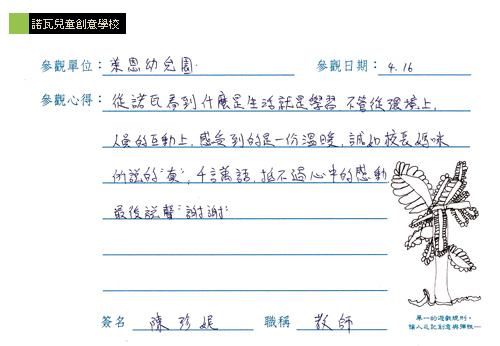 諾瓦兒童創意學校
參觀單位：萊恩幼兒園. 參觀日期：4.16
參觀心得：從諾瓦看到什麼是生活就是學習，不管從環境上，
人員的互動上，感受到的是一份溫暖，誠如校長媽咪
所說的"真"，千言萬語，抵不過心中的感動
最後說聲"謝謝"
簽名 陳珍妮 職稱 教師
單一的遊戲規則，
讓人忘記創意與彈性—